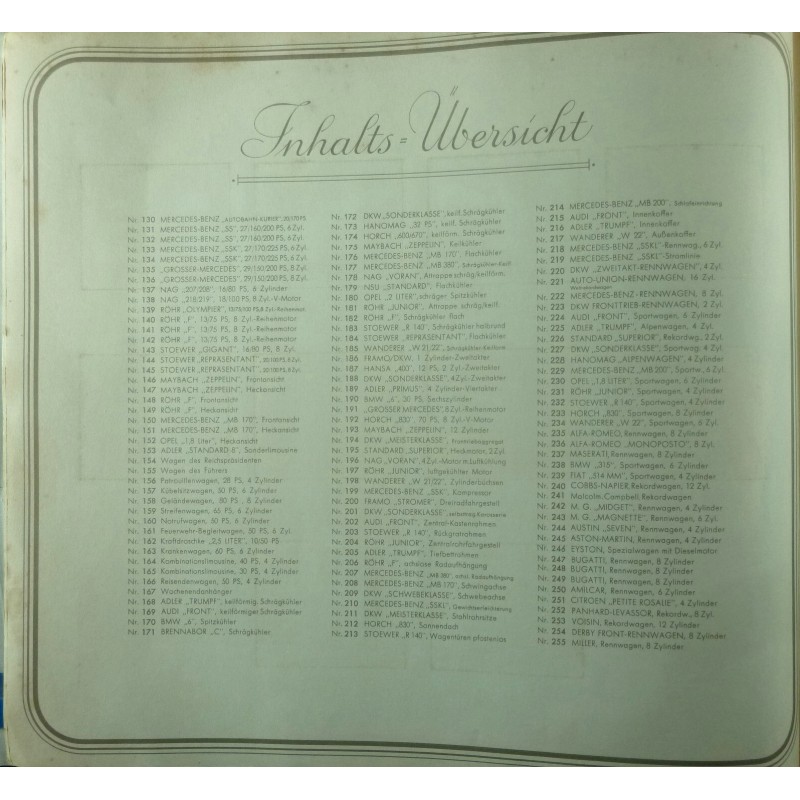 Inhalts=Übersicht
Nr. 130 MERCEDES-BENZ „AUTOBAHN-KURIER" 20/170 PS
Nr. 131 MERCEDES-BENZ „SS", 27/160/200 PS, 6 Zyl.
Nr. 132 MERCEDES-BENZ „SS", 27/160/200 PS, 6 Zyl.
Nr. 133 MERCEDES-BENZ „SSK", 27/170/225 PS, 6 Zyl.
Nr. 134 MERCEDES-BENZ „SSK", 27/170/225 PS, 6 Zyl.
Nr. 135 „GROSSER-MERCEDES", 29/150/200 PS, 8 Zyl.
Nr. 136 „GROSSER-MERCEDES", 29/150/200 PS, 8 Zyl.
Nr. 137 NAG „207/208", 16/80 PS, 8 Zylinder
Nr. 138 NAG „218/219", 18/100 PS, 8 Zyl.-V-Motor
Nr. 139 RÖHR „OLYMPIER", 13/75/100 PS, 8 Zyl.-Reihenmot.
Nr. 140 RÖHR „F", 13/75 PS, 8 Zyl.-Reihenmotor
Nr. 141 RÖHR „F", 13/75 PS, 8 Zyl.-Reihenmotor
Nr. 142 RÖHR „F", 13/75 PS, 8 Zyl.-Reihenmotor
Nr. 143 STOEWER „GIGANT", 16/80 PS, 8 Zyl.
Nr. 144 STOEWER „REPRÄSENTANT", 20/100 PS, 8 Zyl.
Nr. 145 STOEWER „REPRÄSENTANT", 20/100 PS, 8 Zyl.
Nr. 146 MAYBACH „ZEPPELIN", Frontansicht
Nr. 147 MAYBACH „ZEPPELIN", Heckansicht
Nr. 148 RÖHR „F", Frontansicht
Nr. 149 RÖHR „F", Heckansicht
Nr. 150 MERCEDES-BENZ „MB 170", Frontansicht
Nr. 151 MERCEDES-BENZ „MB 170", Heckansicht
Nr. 152 OPEL „1,8 Liter", Heckansicht
Nr. 153 ADLER „STANDARD 6", Sonderlimousine
Nr. 154 Wagen des Reichspräsidenten
Nr. 155 Wagen des Führers
Nr. 156 Patrouillenwagen, 28 PS, 4 Zylinder
Nr. 157 Kübelsitzwagen, 50 PS, 6 Zylinder
Nr. 158 Geländewagen, 80 PS, 8 Zylinder
Nr. 159 Streifenwagen, 65 PS, 6 Zylinder
Nr. 160 Notrufwagen, 50 PS, 6 Zylinder
Nr. 161 Feuerwehr-Begleitwagen, 50 PS, 6 Zyl.
Nr. 162 Kraftdroschke „2,5 LITER", 10/50 PS
Nr. 163 Krankenwagen, 60 PS, 6 Zylinder
Nr. 164 Kombinationslimousine, 40 PS, 4 Zylinder
Nr. 165 Kombinationslimousine, 30 PS, 4 Zylinder
Nr. 166 Reisendenwagen, 50 PS, 4 Zylinder
Nr. 167 Wochenendanhänger
Nr. 168 ADLER „TRUMPF", keilförmig. Schrägkühler
Nr. 169 AUDI „FRONT", keilförmiger Schrägkühler
Nr. 170 BMW „6", Spitzkühler
Nr. 171 BRENNABOR „C", Schrägkühler
Nr. 172 DKW „SONDERKLASSE", keilf. Schrägkühler
Nr. 173 HANOMAG „32 PS", keilf. Schrägkühler
Nr. 174 HORCH „600/670", keilförm. Schrägkühler
Nr. 175 MAYBACH „ZEPPELIN", Keilkühler
Nr. 176 MERCEDES-BENZ „MB 170", Flachkühler
Nr. 177 MERCEDES-BENZ „MB 380", Schrägkühler-Keilf.
Nr. 178 NAG „VORAN", Attrappe schräg/keilförm.
Nr. 179 NSU „STANDARD", Flachkühler
Nr. 180 OPEL „2 LITER", schräger Spitzkühler
Nr. 181 RÖHR „JUNIOR", Attrappe schräg/keilf.
Nr. 182 RÖHR „F", Schrägkühler flach
Nr. 183 STOEWER „R 140", Schrägkühler keilrund
Nr. 184 STOEWER „REPRÄSENTANT", Flachkühler
Nr. 185 WANDERER „W 21/22", Schrägkühler-Keilform
Nr. 186 FRAMO/DKW, 1 Zylinder-Zweitakter
Nr. 187 HANSA „400", 12 PS, 2 Zyl.-Zweitakter
Nr. 188 DKW „SONDERKLASSE", 4 Zyl.-Zweitakter
Nr. 189 ADLER „PRIMUS", 4 Zylinder-Viertakter
Nr. 190 BMW „6", 30 PS, Sechszylinder
Nr. 191 „GROSSER MERCEDES", 8 Zyl.-Reihenmotor
Nr. 192 HORCH „830", 70 PS, 8 Zyl.-V-Motor
Nr. 193 MAYBACH „ZEPPELIN", 12 Zylinder
Nr. 194 DKW „MEISTERKLASSE", Fronttriebaggregat
Nr. 195 STANDARD „SUPERIOR", Heckmotor, 2 Zyl.
Nr. 196 NAG „VORAN", 4 Zyl.-Motor m. Luftkühlung
Nr. 197 RÖHR „JUNIOR", luftgekühlter Motor
Nr. 198 WANDERER „W 21/22", Zylinderbüchsen
Nr. 199 MERCEDES-BENZ „SSK", Kompressor
Nr. 200 FRAMO „STROMER", Dreiradfahrgestell
Nr. 201 DKW „SONDERKLASSE", selbsttrag. Karosserie
Nr. 202 AUDI „FRONT", Zentral-Kastenrahmen
Nr. 203 STOEWER „R 140", Rückgratrahmen
Nr. 204 RÖHR „JUNIOR", Zentralrohrfahrgestell
Nr. 205 ADLER „TRUMPF", Tiefbettrahmen
Nr. 206 RÖHR „F", achslose Radaufhängung
Nr. 207 MERCEDES-BENZ „MB 380", achsl. Radaufhängung
Nr. 208 MERCEDES-BENZ „MB 170", Schwingachse
Nr. 209 DKW „SCHWEBEKLASSE", Schwebeachse
Nr. 210 MERCEDES-BENZ „SSKL", Gewichtserleichterung
Nr. 211 DKW „MEISTERKLASSE", Stahlrohrsitze
Nr. 212 HORCH „830", Sonnendach
Nr. 213 STOEWER „R 140", Wagentüren pfostenlos
Nr. 214 MERCEDES-BENZ „MB 200", Schlafeinrichtung
Nr. 215 AUDI „FRONT", Innenkoffer
Nr. 216 ADLER „TRUMPF", Innenkoffer
Nr. 217 WANDERER „W 22", Außenkoffer
Nr. 218 MERCEDES-BENZ „SSKL"-Rennwag., 6 Zyl.
Nr. 219 MERCEDES-BENZ „SSKL"-Stromlinie
Nr. 220 DKW „ZWEITAKT-RENNWAGEN", 4 Zyl.
Nr. 221 AUTO-UNION-RENNWAGEN, 16 Zyl.
Weltrekordwagen
Nr. 222 MERCEDES-BENZ-RENNWAGEN, 8 Zyl.
Nr. 223 DKW FRONTTRIEB-RENNWAGEN, 2 Zyl.
Nr. 224 AUDI „FRONT", Sportwagen, 6 Zylinder
Nr. 225 ADLER „TRUMPF", Alpenwagen, 4 Zyl.
Nr. 226 STANDARD „SUPERIOR", Rekordwg., 2 Zyl.
Nr. 227 DKW „SONDERKLASSE", Sportwag., 4 Zyl.
Nr. 228 HANOMAG „ALPENWAGEN", 4 Zylinder
Nr. 229 MERCEDES-BENZ „MB 200", Sportw., 6 Zyl.
Nr. 230 OPEL „1,8 LITER", Sportwagen, 6 Zylinder
Nr. 231 RÖHR „JUNIOR", Sportwagen, 4 Zylinder
Nr. 232 STOEWER „R 140", Sportwagen, 4 Zylinder
Nr. 233 HORCH „830", Sportwagen, 8 Zylinder
Nr. 234 WANDERER „W 22", Sportwagen, 6 Zylinder
Nr. 235 ALFA-ROMEO, Rennwagen, 8 Zylinder
Nr. 236 ALFA-ROMEO „MONOPOSTO", 8 Zyl.
Nr. 237 MASERATI, Rennwagen, 8 Zylinder
Nr. 238 BMW „315", Sportwagen, 6 Zylinder
Nr. 239 FIAT „514 MM", Sportwagen, 4 Zylinder
Nr. 240 COBBS-NAPIER, Rekordwagen, 12 Zyl.
Nr. 241 Malcolm Campbell, Rekordwagen
Nr. 242 M. G. „MIDGET", Rennwagen, 4 Zylinder
Nr. 243 M. G. „MAGNETTE", Rennwagen, 6 Zyl.
Nr. 244 AUSTIN „SEVEN", Rennwagen, 4 Zylinder
Nr. 245 ASTON-MARTIN, Rennwagen, 4 Zylinder
Nr. 246 EYSTON, Spezialwagen mit Dieselmotor
Nr. 247 BUGATTI, Rennwagen, 8 Zylinder
Nr. 248 BUGATTI, Rennwagen, 8 Zylinder
Nr. 249 BUGATTI, Rennwagen, 8 Zylinder
Nr. 250 AMILCAR, Rennwagen, 6 Zylinder
Nr. 251 CITROEN „PETITE ROSALIE", 4 Zylinder
Nr. 252 PANHARD-LEVASSOR, Rekordw., 8 Zyl.
Nr. 253 VOISIN, Rekordwagen, 12 Zylinder
Nr. 254 DERBY FRONT-RENNWAGEN, 8 Zylinder
Nr. 255 MILLER, Rennwagen, 8 Zylinder